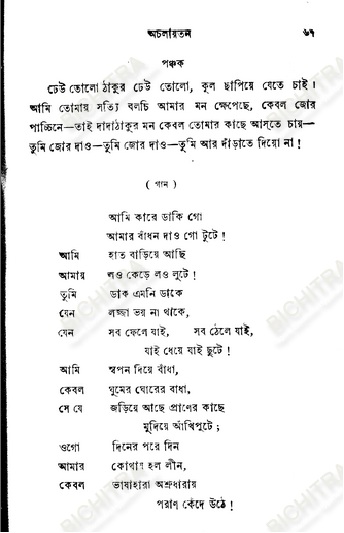 অচলায়তন ৬৭
পঞ্চক
ঢেউ তোলো ঠাকুর ঢেউ তোলো, কূল ছাপিয়ে যেতে চাই।
আমি তোমায় সত্যি বলচি আমার মন ক্ষেপেছে, কেবল জোর
পাচ্চিনে—তাই দাদাঠাকুর মন কেবল তোমার কাছে আস্‌তে চায়—
তুমি জোর দাও—তুমি জোর দাও—তুমি আর দাঁড়াতে দিয়ো না!
( গান )
আমি কারে ডাকি গো
আমার বাঁধন দাও গো টুটে॥
আমি হাত বাড়িয়ে আছি
আমায় লও কেড়ে লও লুটে!
তুমি ডাক এমনি ডাকে
যেন লজ্জা ভয় না থাকে,
যেন সব ফেলে যাই, সব ঠেলে যাই,
যাই ধেয়ে যাই ছুটে!
আমি স্বপন দিয়ে বাঁধা,
কেবল ঘুমের ঘোরের বাধা,
সে যে জড়িয়ে আছে প্রাণের কাছে
মুদিয়ে আঁখিপুটে;
ওগো দিনের পরে দিন
আমার কোথায় হল লীন,
কেবল ভাষাহারা অশ্রুধারায়
পরাণ কেঁদে উঠে!
BICHITRA